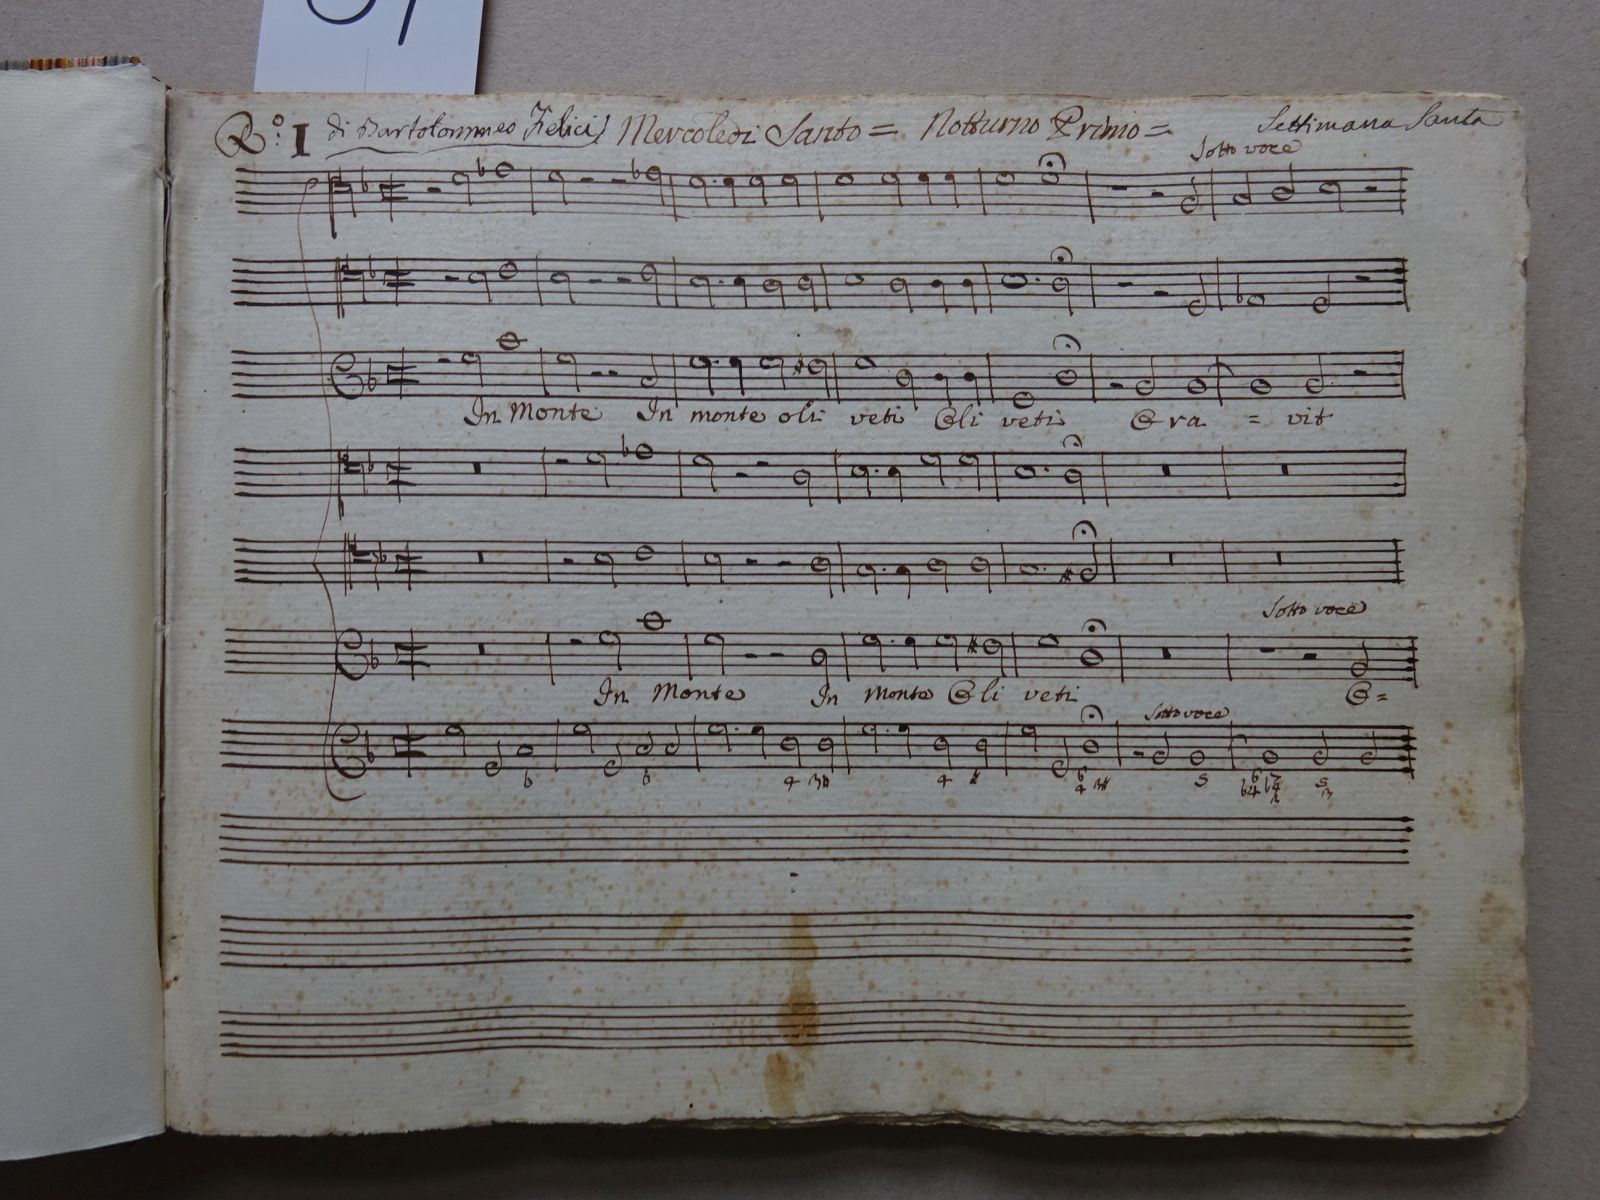 Ro: I di Bartolommeo Felici Mercoledi Santo = Notturno Primo = Settimana Santa
Sotto voce
In Monte In monte oli veti Oli veti Ora = vit
Sotto voce
In Monte In Monte Oli veti O=
Sotto voce
b b 4 3# 4 # 6 4 3# 5 5 3